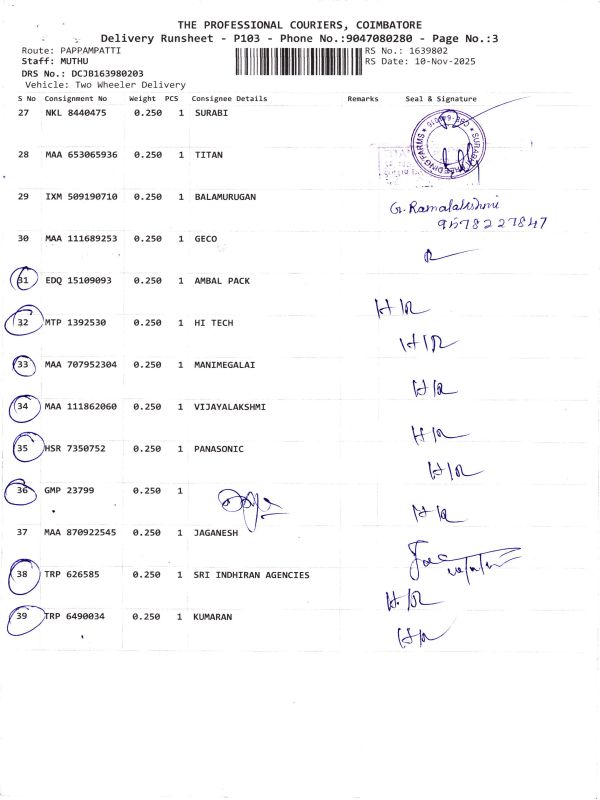 THE PROFESSIONAL COURIERS, COIMBATORE
Delivery Runsheet - P103 - Phone No.:9047080280 - Page No.:3
Route: PAPPAMPATTI RS No.: 1639802
Staff: MUTHU RS Date: 10-Nov-2025
DRS No.: DCJB163980203
Vehicle: Two Wheeler Delivery
S No Consignment No Weight PCS Consignee Details Remarks Seal & Signature
27 NKL 8440475 0.250 1 SURABI
28 MAA 653065936 0.250 1 TITAN
29 IXM 509190710 0.250 1 BALAMURUGAN
G. Ramalakshmi
9578227847
30 MAA 111689253 0.250 1 GECO
31 EDQ 15109093 0.250 1 AMBAL PACK
H/R
32 MTP 1392530 0.250 1 HI TECH
H/R
33 MAA 707952304 0.250 1 MANIMEGALAI
H/R
34 MAA 111862060 0.250 1 VIJAYALAKSHMI
H/R
35 HSR 7350752 0.250 1 PANASONIC
H/R
36 GMP 23799 0.250 1
H/R
37 MAA 870922545 0.250 1 JAGANESH
38 TRP 626585 0.250 1 SRI INDHIRAN AGENCIES
H/R
39 TRP 6490034 0.250 1 KUMARAN
H/R